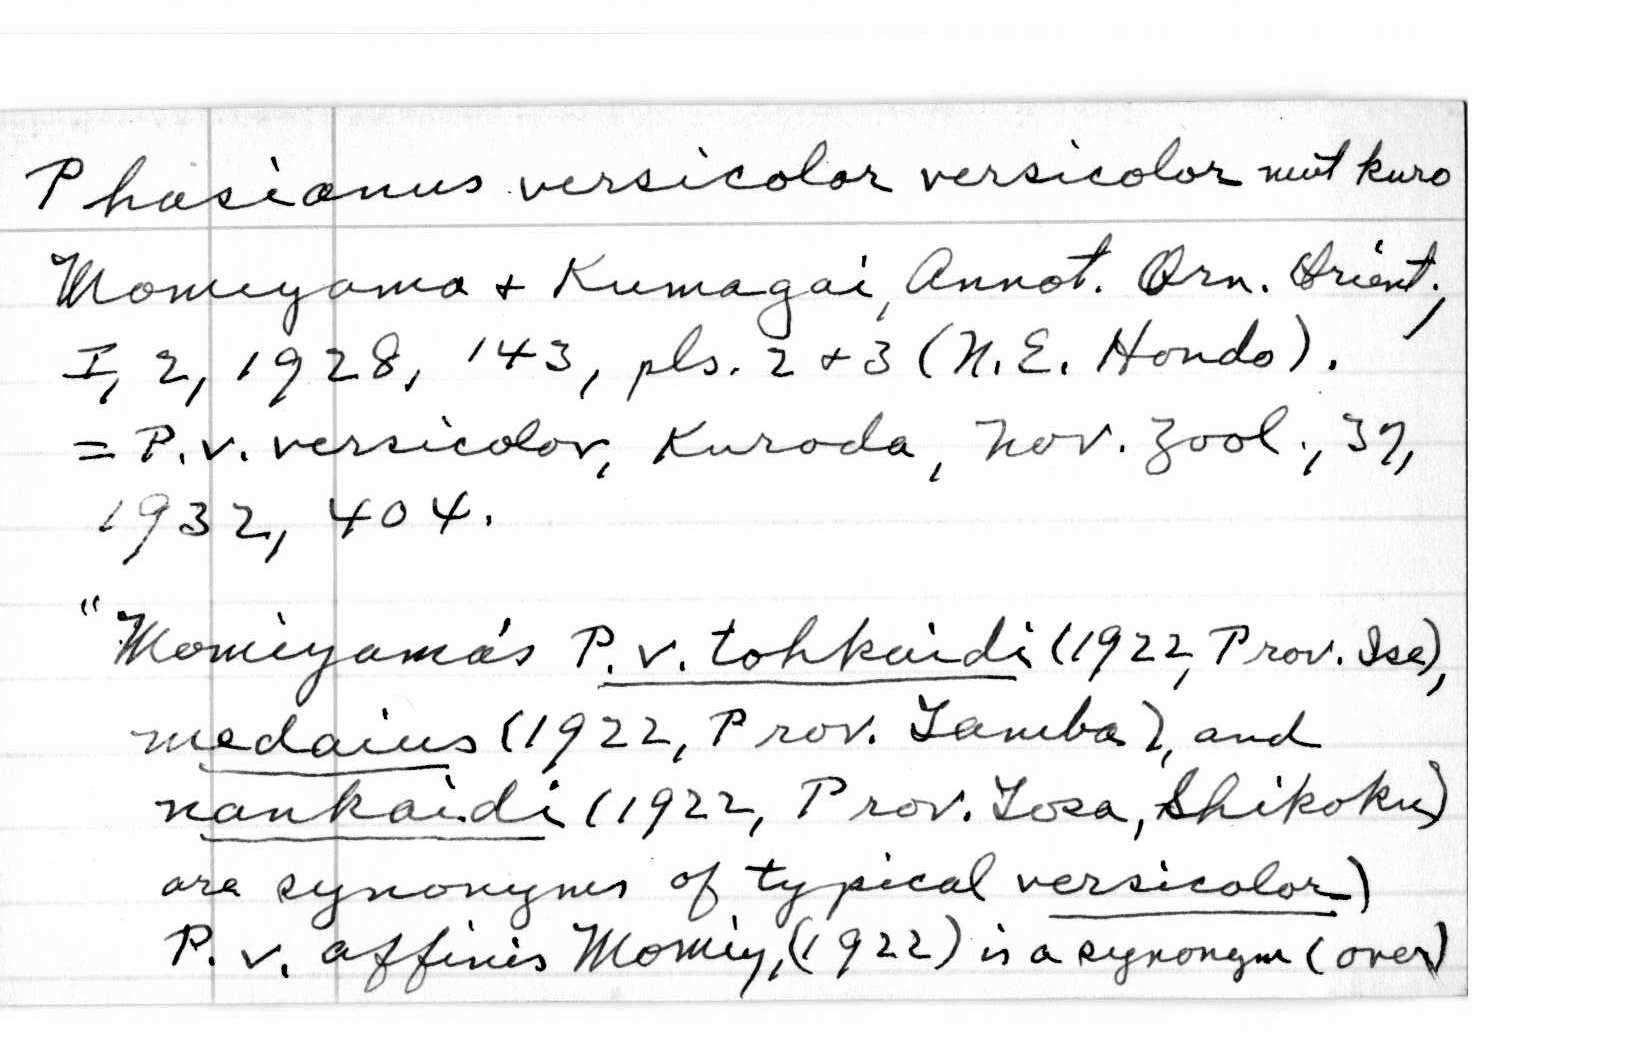 Phasianus versicolor versicolor mut kuro
Momiyama + Kumagai, Annot. Orn. Orient.,
I, 2, 1928, 143, pls. 2 + 3 (N.E. Hondo).
= P. v. versicolor, Kuroda, Nov. Zool., 37,
1932, 404.
"Momiyama's P. v. tohkaidi (1922, Prov. Ise),
medaius (1922, Prov. Tamba), and
nankaidi (1922, Prov. Tosa, Shikoku)
are synonyms of typical versicolor)
P. v. affinis Momiy, (1922) is a synonym (over)